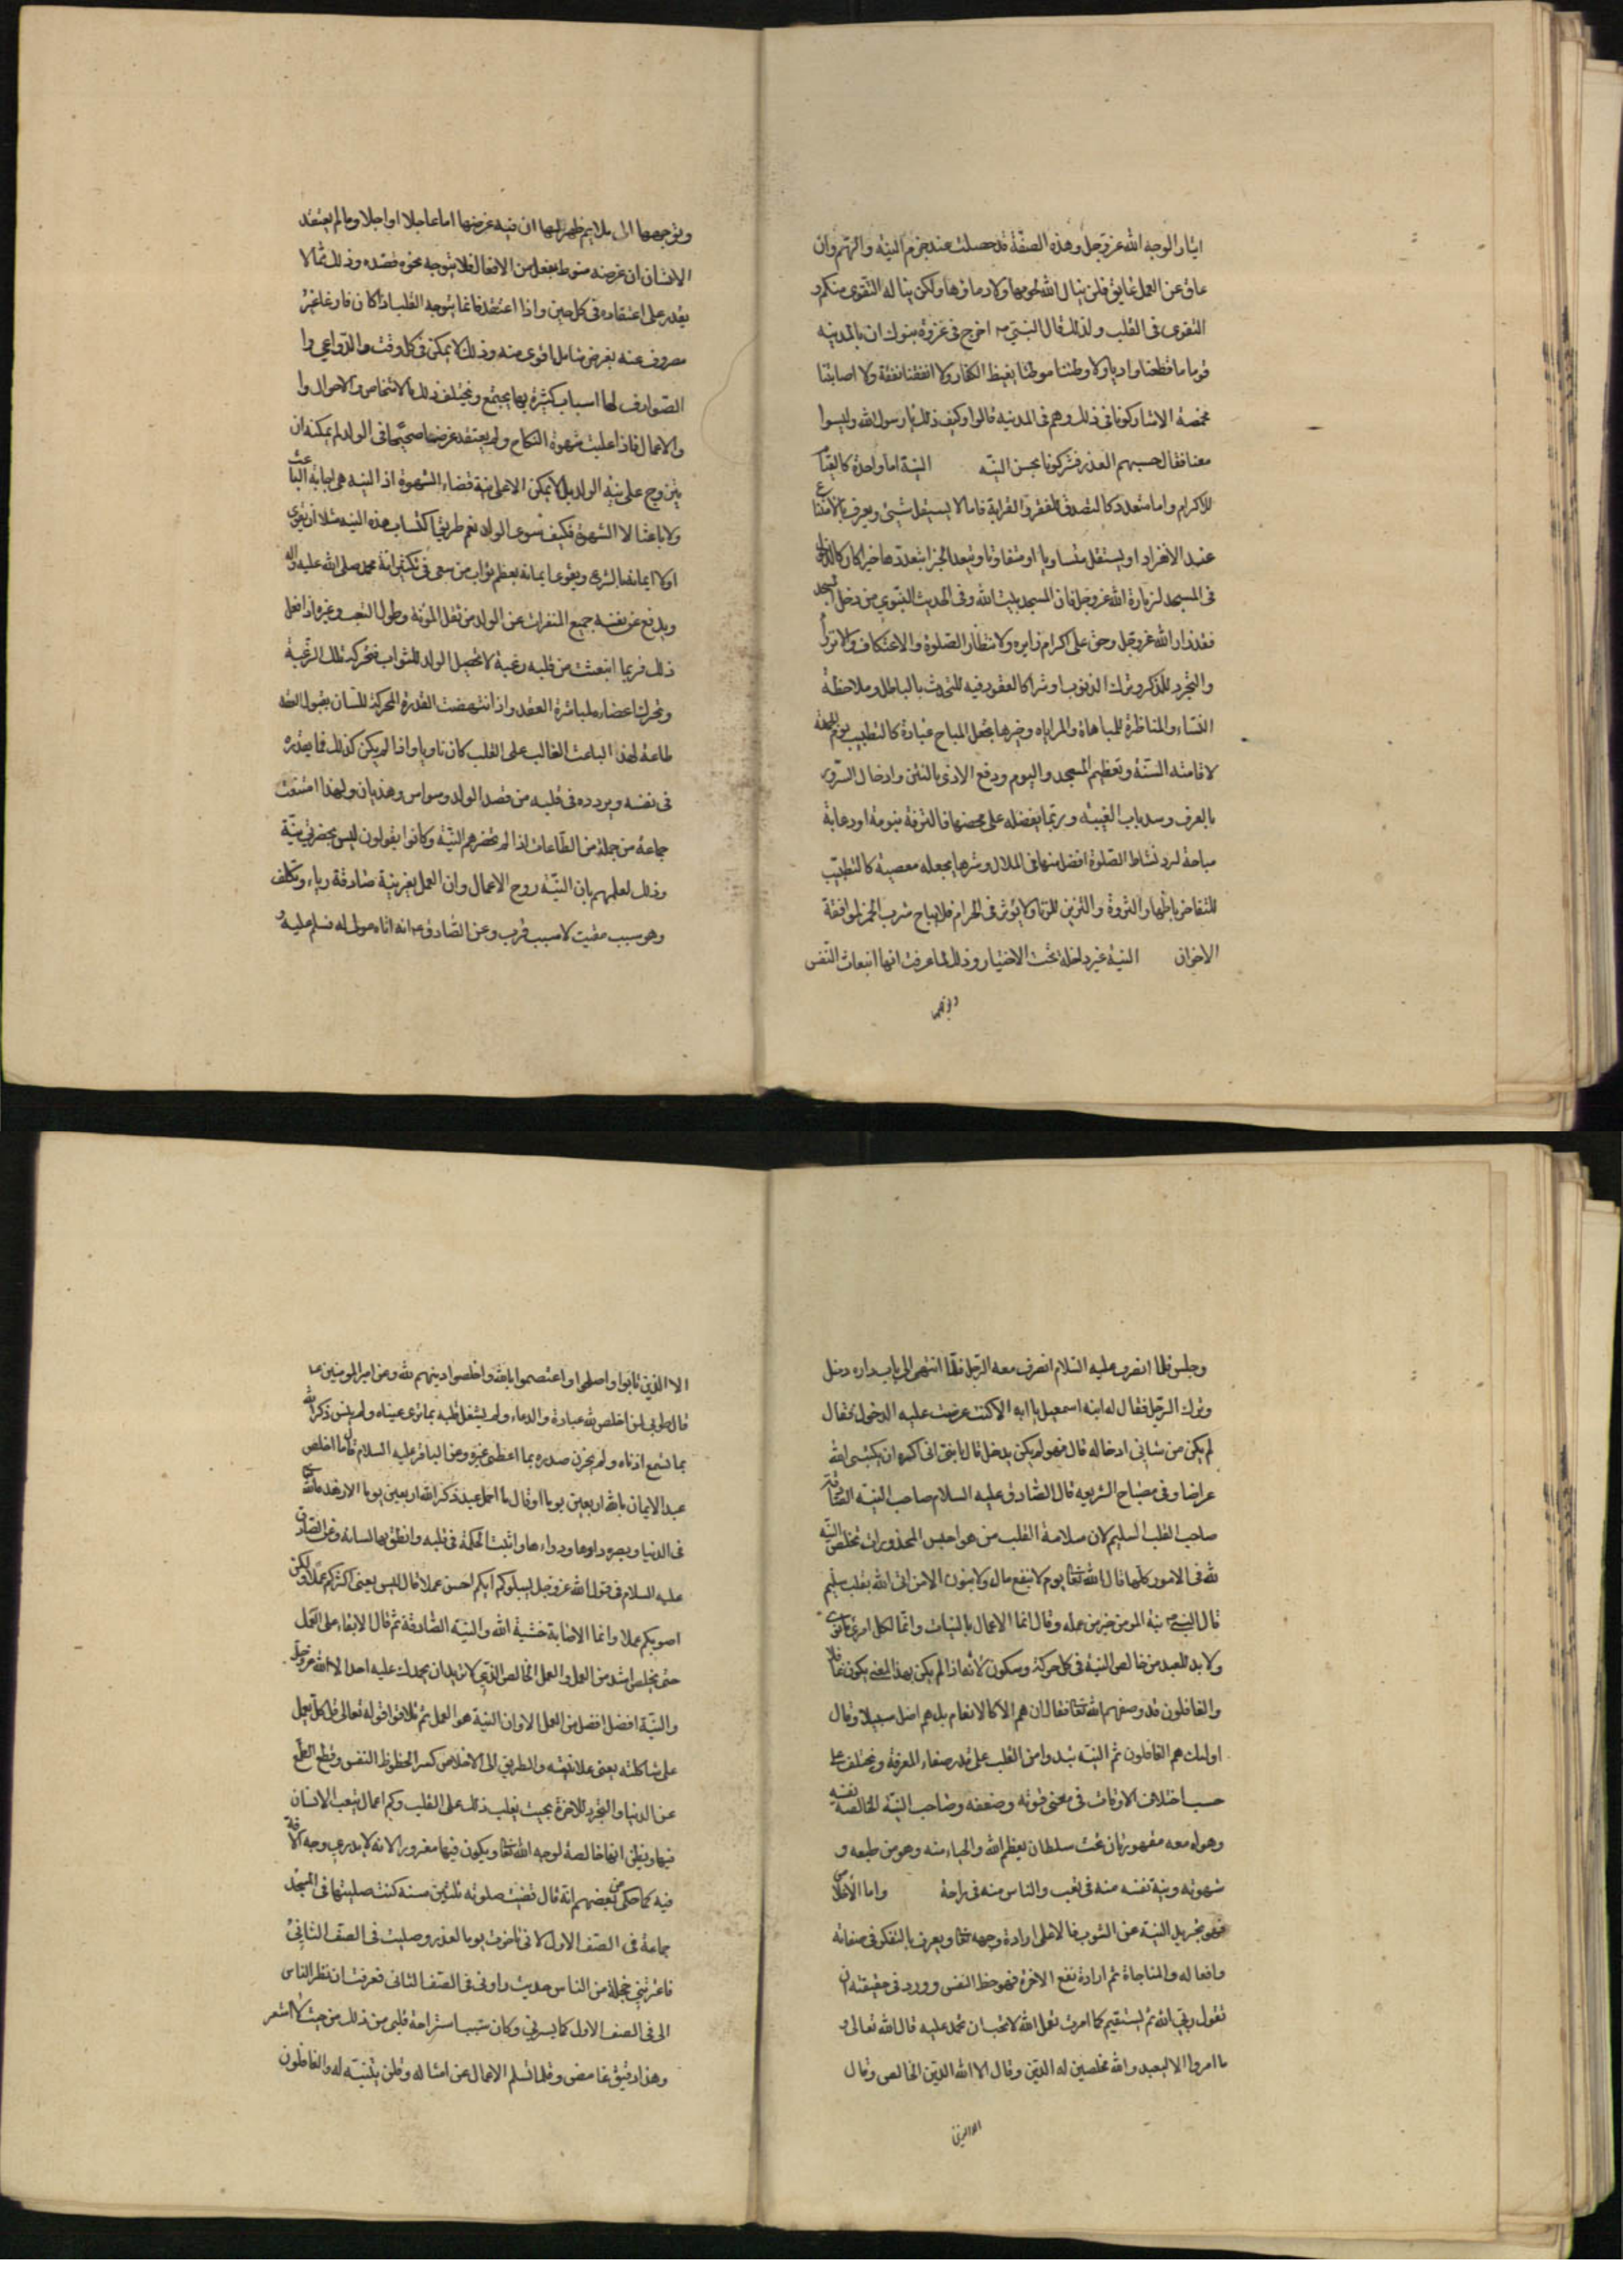 ايثارا لوجه الله عز وجل وهذه الصفة قد حصلت عند جزم النية والهم وان
عاق عن العمل عايق فلن ينال الله لحومها ولا دماؤها ولكن يناله التقوى منكم و
التقوى فى القلب ولذلك قال النبى ص اخرج فى غزوة تبوك ان بالمدينه
قوما ما قطعنا واديا ولا وطئنا موطئا يغيظ الكفار ولا انفقنا نفقة ولا اصابتنا
مخمصة الا شاركونا فى ذلك وهم فى المدينه قالوا وكيف ذلك يا رسول الله وليسوا
معنا فقال حسبهم العذر فشركونا بحسن النيه النية اما واحدة كالقيام
للاكرام واما متعدد كالتصدق للفقر والقرابة فاما لا يستقل شيئ ويعرف بالامتناع
عند الانفراد او يستقل متساويا او متفاوتا ويتعدد الجزا بتعددها خيرا كان كالدخول
فى المسجد لزيارة الله عز وجل فان المسجد بيت الله وفى الحديث النبوي من دخل المسجد
فقد زار الله عز وجل وحق على كرام زايره ولانتظار الصلوة والاعتكاف والانزواء
والتجرد للذكر وترك الذنوب او شرا كالعقود فيه للتحدث بالباطل وملاحظة
النساء والمناظرة للمباهاة والمراياه وخيرها يجعل المباح عبادة كالتطيب يوم الجمعة
لاقامته السنة وتعظيم المسجد واليوم ودفع الاذى بالنتن وادخال السرور
بالعرف وسد باب الغيبه وربما يفضله على محضها فالترفه بنومة او دعابة
مباحة لرد نشاط الصلوة افضل منها فى الملال وشرها يجعله معصية كالتطيب
للتفاخر باظهار الثروة والتزين للزنا ولا يوثر فى الحرام فلا يباح شرب الخمر لموافقة
الاخوان النية غير داخلة تحت الاختيار وذلك لما عرفت انها انبعاث النفس
وتوجهها
وتوجهها الى ما يلايم ظهر لها ان فيه غرضها اما عاجلا او اجلا وما لم يعتقد
الانسان ان غرضه منوط بفعل من الافعال فلا يتوجه نحوه قصده وذلك مما لا
يقدر على اعتقاده فى كل حين واذا اعتقد فانما يتوجه القلب اذا كان فارغا غير
مصروف عنه بغرض شاغل اقوى منه وذلك لا يمكن فى كل وقت والدواعي وا
الصوارف لها اسباب كثيرة بها يجتمع ويختلف ذلك بالاشخاص والاحوال وا
والاعمال فاذا غلبت شهوة النكاح ولم يعتقد غرضا صحيحا فى الولد لم يمكنه ان
يتزوج على نية الولد بل لا يمكن الا على نية قضاء الشهوة اذ النيه هى اجابة الباعث
ولا باعث الا الشهوة فكيف ينوى الولد نعم طريق اكتساب هذه النيه مثلا ان يقوى
اولا ايمانه بالشرع ويقوى ايمانه بعظم ثواب من سعى فى تكثير امة محمد صلى الله عليه واله
ويدفع عن نفسه جميع المنفرات عن الولد من ثقل المؤنة وطول التعب وغيره اذا فعل
ذلك فربما انبعثت من قلبه رغبة لا تحصيل الولد للثواب فتحركه تلك الرغبة
وتحرك اعضاءه لمباشرة العقد واذا انتهضت القدرة المحركة للسان بقبول العقد
طاعة لهذا الباعث الغالب على القلب كان ناويا واذا لم يكن كذلك فما يقدره
فى نفسه ويردده فى قلبه من قصد الولد وسواس وهذيان ولهذا امتنعت
جماعة من جملة من الطاعات اذا لم تحضرهم النية وكانوا يقولون ليس يحضرني نية
وذلك لعلمهم بان النية روح الاعمال وان العمل بغير نية صادقة رياء وتكلف
وهو سبب مقيت لا سبب قرب وعن الصادق ع انه اتاه مولى له فسلم عليه و
وجلس فلما انصرف عليه السلام انصرف معه الرجل فلما انتهى الى باب داره دخل
وترك الرجل فقال له ابنه اسمعيل يا ابه الا كنت عرضت عليه الدخول فقال
لم يكن من شانى ادخاله قال فهو لم يكن يدخل قال يا بنى انى اكره ان يكتبنى الله
عراضا وفى مصباح الشريعه قال الصادق عليه السلام صاحب النية الصادقة
صاحب القلب السليم لان سلامة القلب من هواجس المحذورات تخلص النية
لله فى الامور كلها قال الله تعالى يوم لا ينفع مال ولا بنون الا من اتى الله بقلب سليم
قال النبي ص نية المومن خير من عمله وقال انما الاعمال بالنيات وانما لكل امرئ ما نوى
ولا بد للعبد من خالص النية فى كل حركة وسكون لانه اذا لم يكن بهذا المعنى يكون غافلا
والغافلون قد وصفهم الله تعالى فقال ان هم الا كالانعام بل هم اضل سبيلا وقال
اولئك هم الغافلون ثم النية تبدوا من القلب على قدر صفاء المعرفة وتختلف على
حسب اختلاف الاوقات فى معنى قوته وضعفه وصاحب النية الخالصة نفسه
وهواه معه مقهورتان تحت سلطان يعظم الله والحياء منه وهو من طبعه و
شهوته ونية نفسه منه فى تعب والناس منه فى راحة واما الاخلاص
فهو تجريد النية عن الشوب فالاعلى ارادة وجهه تعالى ويعرف بالتفكر فى صفاته
وافعاله والمناجاة ثم ارادة نفع الاخرة فهو حظ النفس وورد فى حقيقته ان
تقول ربى الله ثم تستقيم كما امرت تعمل لله لا تحب ان تحمد عليه قال الله تعالى و
ما امروا الا ليعبدوا الله مخلصين له الدين وقال الا لله الدين الخالص وقال
الا الذين
الا الذين تابوا واصلحوا واعتصموا بالله واخلصوا دينهم لله وعن امير المومنين ع
قال طوبى لمن اخلص لله عبادة والدعاء ولم يشغل قلبه بما ترى عيناه ولم ينس ذكر الله
بما تسمع اذناه ولم يحزن صدره بما اعطى غيره وعن الباقر عليه السلام قال ما اخلص
عبد الايمان بالله اربعين يوما او قال ما اجمل عبد ذكر الله اربعين يوما الا زهده الله
فى الدنيا وبصره داءها ودواءها واثبت الحكمة فى قلبه وانطق بها لسانه وعن الصادق
عليه السلام فى قول الله عز وجل ليبلوكم ايكم احسن عملا قال ليس يعنى اكثركم عملا ولكن
اصوبكم عملا وانما الاصابة خشية الله والنية الصادقة ثم قال الابقاء على العمل
حتى يخلص اشد من العمل والعمل الخالص الذي لا تريد ان يحمدك عليه احد الا الله عز وجل
والنية افضل من العمل الا وان النية هو العمل ثم تلا قوله تعالى قل كل يعمل
على شاكلته يعنى على نيته والطريق الى الاخلاص كسر الحظوظ النفس وقطع الطمع
عن الدنيا والتجرد للاخرة بحيث يغلب ذلك على القلب وكم اعمال يتعب الانسان
فيها ويظن انها خالصة لوجه الله تعالى ويكون فيها مغرورا لانه لا يدري وجه الافة
فيه كما حكى عن بعضهم انه قال قضيت صلوته ثلثين سنة كنت صليتها فى المسجد
جماعة فى الصف الاول لانى تاخرت يوما لعذر وصليت فى الصف الثاني
فاعترتني خجلة من الناس حيث راونى فى الصف الثانى فعرفت ان نظر الناس
الى فى الصف الاول كما يسرني وكان سبب استراحة قلبى من ذلك من حيث لا اشعر
وهذا دقيق غامض وقلما تسلم الاعمال عن امثاله وقلن يتنبه له والغافلون